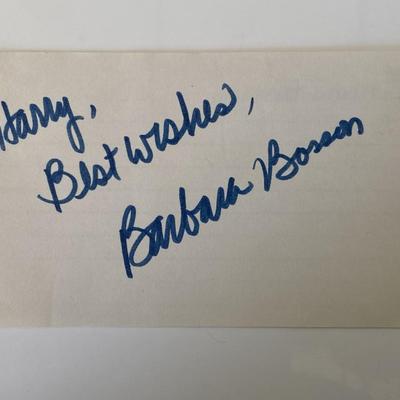 Harry,
Best wishes,
Barbara Bosson